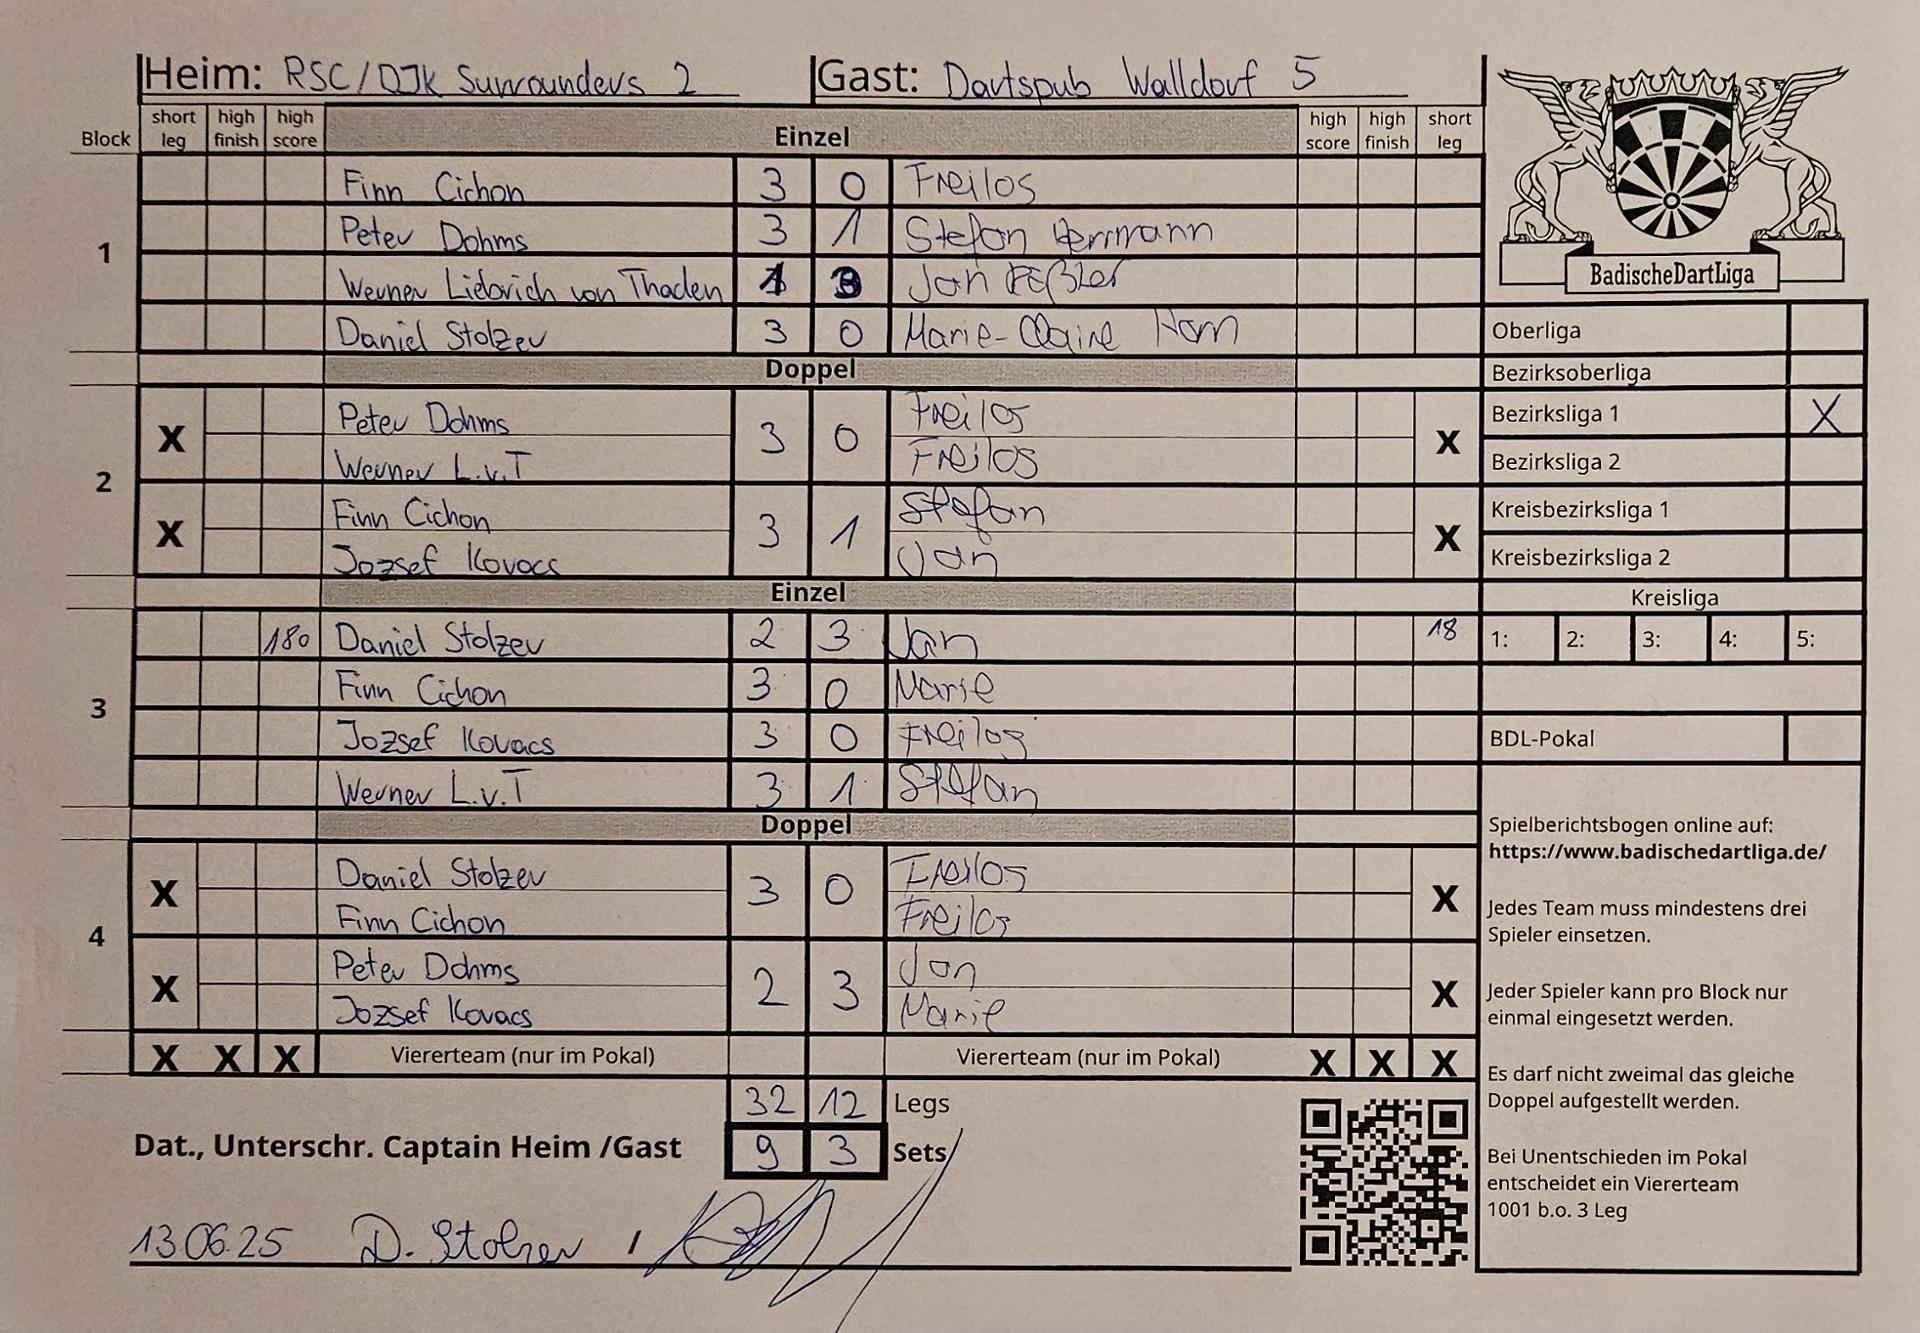 Heim: RSC/DJK Surrounders 2 Gast: Dartspub Walldorf 5
Block short leg high finish high score Einzel high score high finish short leg
1
Finn Cichon 3 0 Freilos
Peter Dohms 3 1 Stefan Herrmann
Werner Liebrich von Thaden 1 3 Jan
Daniel Stolzer 3 0 Marie-Claire Horn
Doppel
2
X Peter Dohms 3 0 Freilos X
Werner L.v.T Freilos
X Finn Cichon 3 1 Stefan X
Jozsef Kovacs Jan
Einzel
3
180 Daniel Stolzer 2 3 Jan 18
Finn Cichon 3 0 Marie
Jozsef Kovacs 3 0 Freilos
Werner L.v.T 3 1 Stefan
Doppel
4
X Daniel Stolzer 3 0 Freilos X
Finn Cichon Freilos
X Peter Dohms 2 3 Jan X
Jozsef Kovacs Marie
X X X Viererteam (nur im Pokal) Viererteam (nur im Pokal) X X X
32 12 Legs
Dat., Unterschr. Captain Heim /Gast 9 3 Sets
13.06.25 D. Stolzer /
BadischeDartLiga
Oberliga
Bezirksoberliga
Bezirksliga 1 X
Bezirksliga 2
Kreisbezirksliga 1
Kreisbezirksliga 2
Kreisliga
1: 2: 3: 4: 5:
BDL-Pokal
Spielberichtsbogen online auf:
https://www.badischedartliga.de/
Jedes Team muss mindestens drei
Spieler einsetzen.
Jeder Spieler kann pro Block nur
einmal eingesetzt werden.
Es darf nicht zweimal das gleiche
Doppel aufgestellt werden.
Bei Unentschieden im Pokal
entscheidet ein Viererteam
1001 b.o. 3 Leg